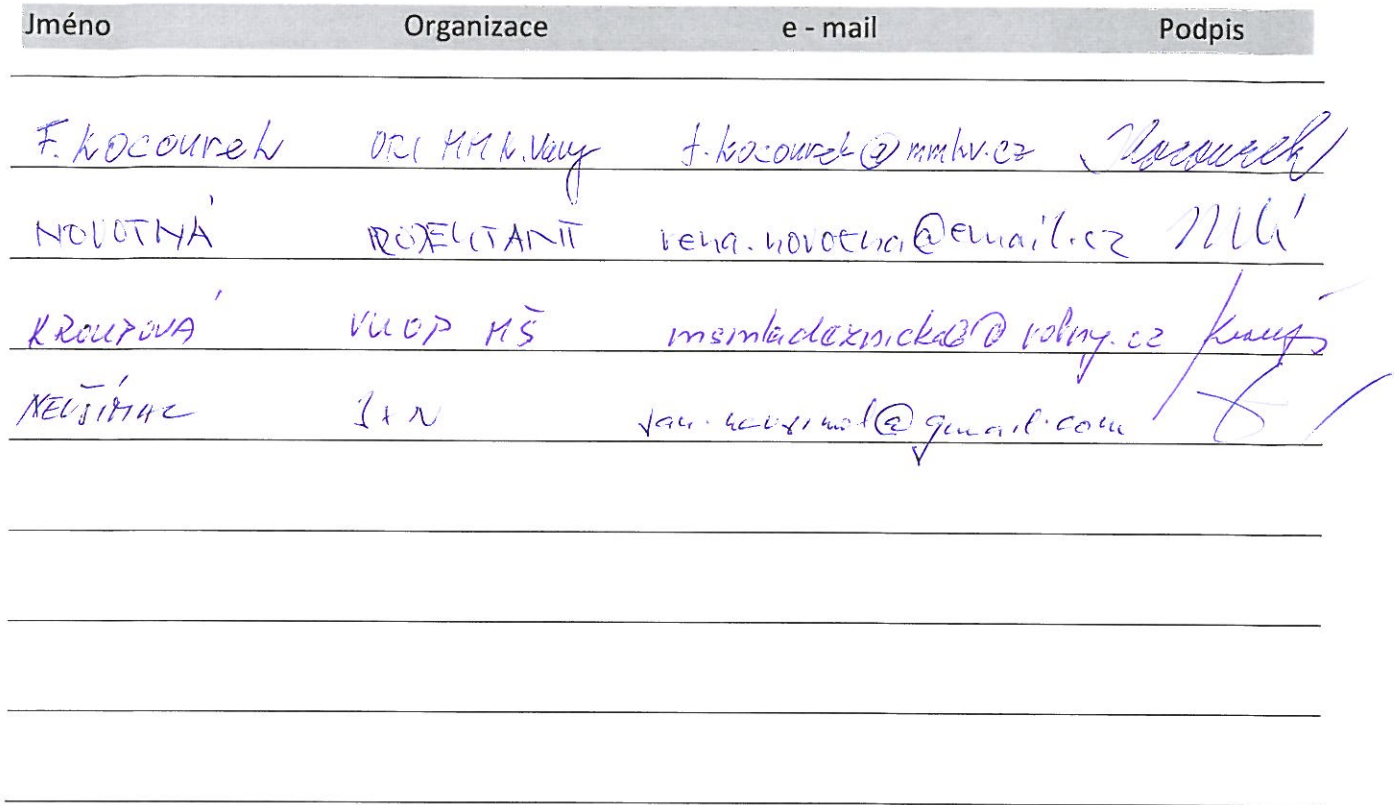 Jméno Organizace e - mail Podpis
F. Kocourek ORI MM K.Vary f.kocourek@mmkv.cz Kocourek
NOVOTNÁ PROJEKTANT vena.novotna@email.cz
KROUPOVÁ MŠ msmladeznicka6@volny.cz
NEVŠÍMAL J+N jan.nevsimal@gmail.com